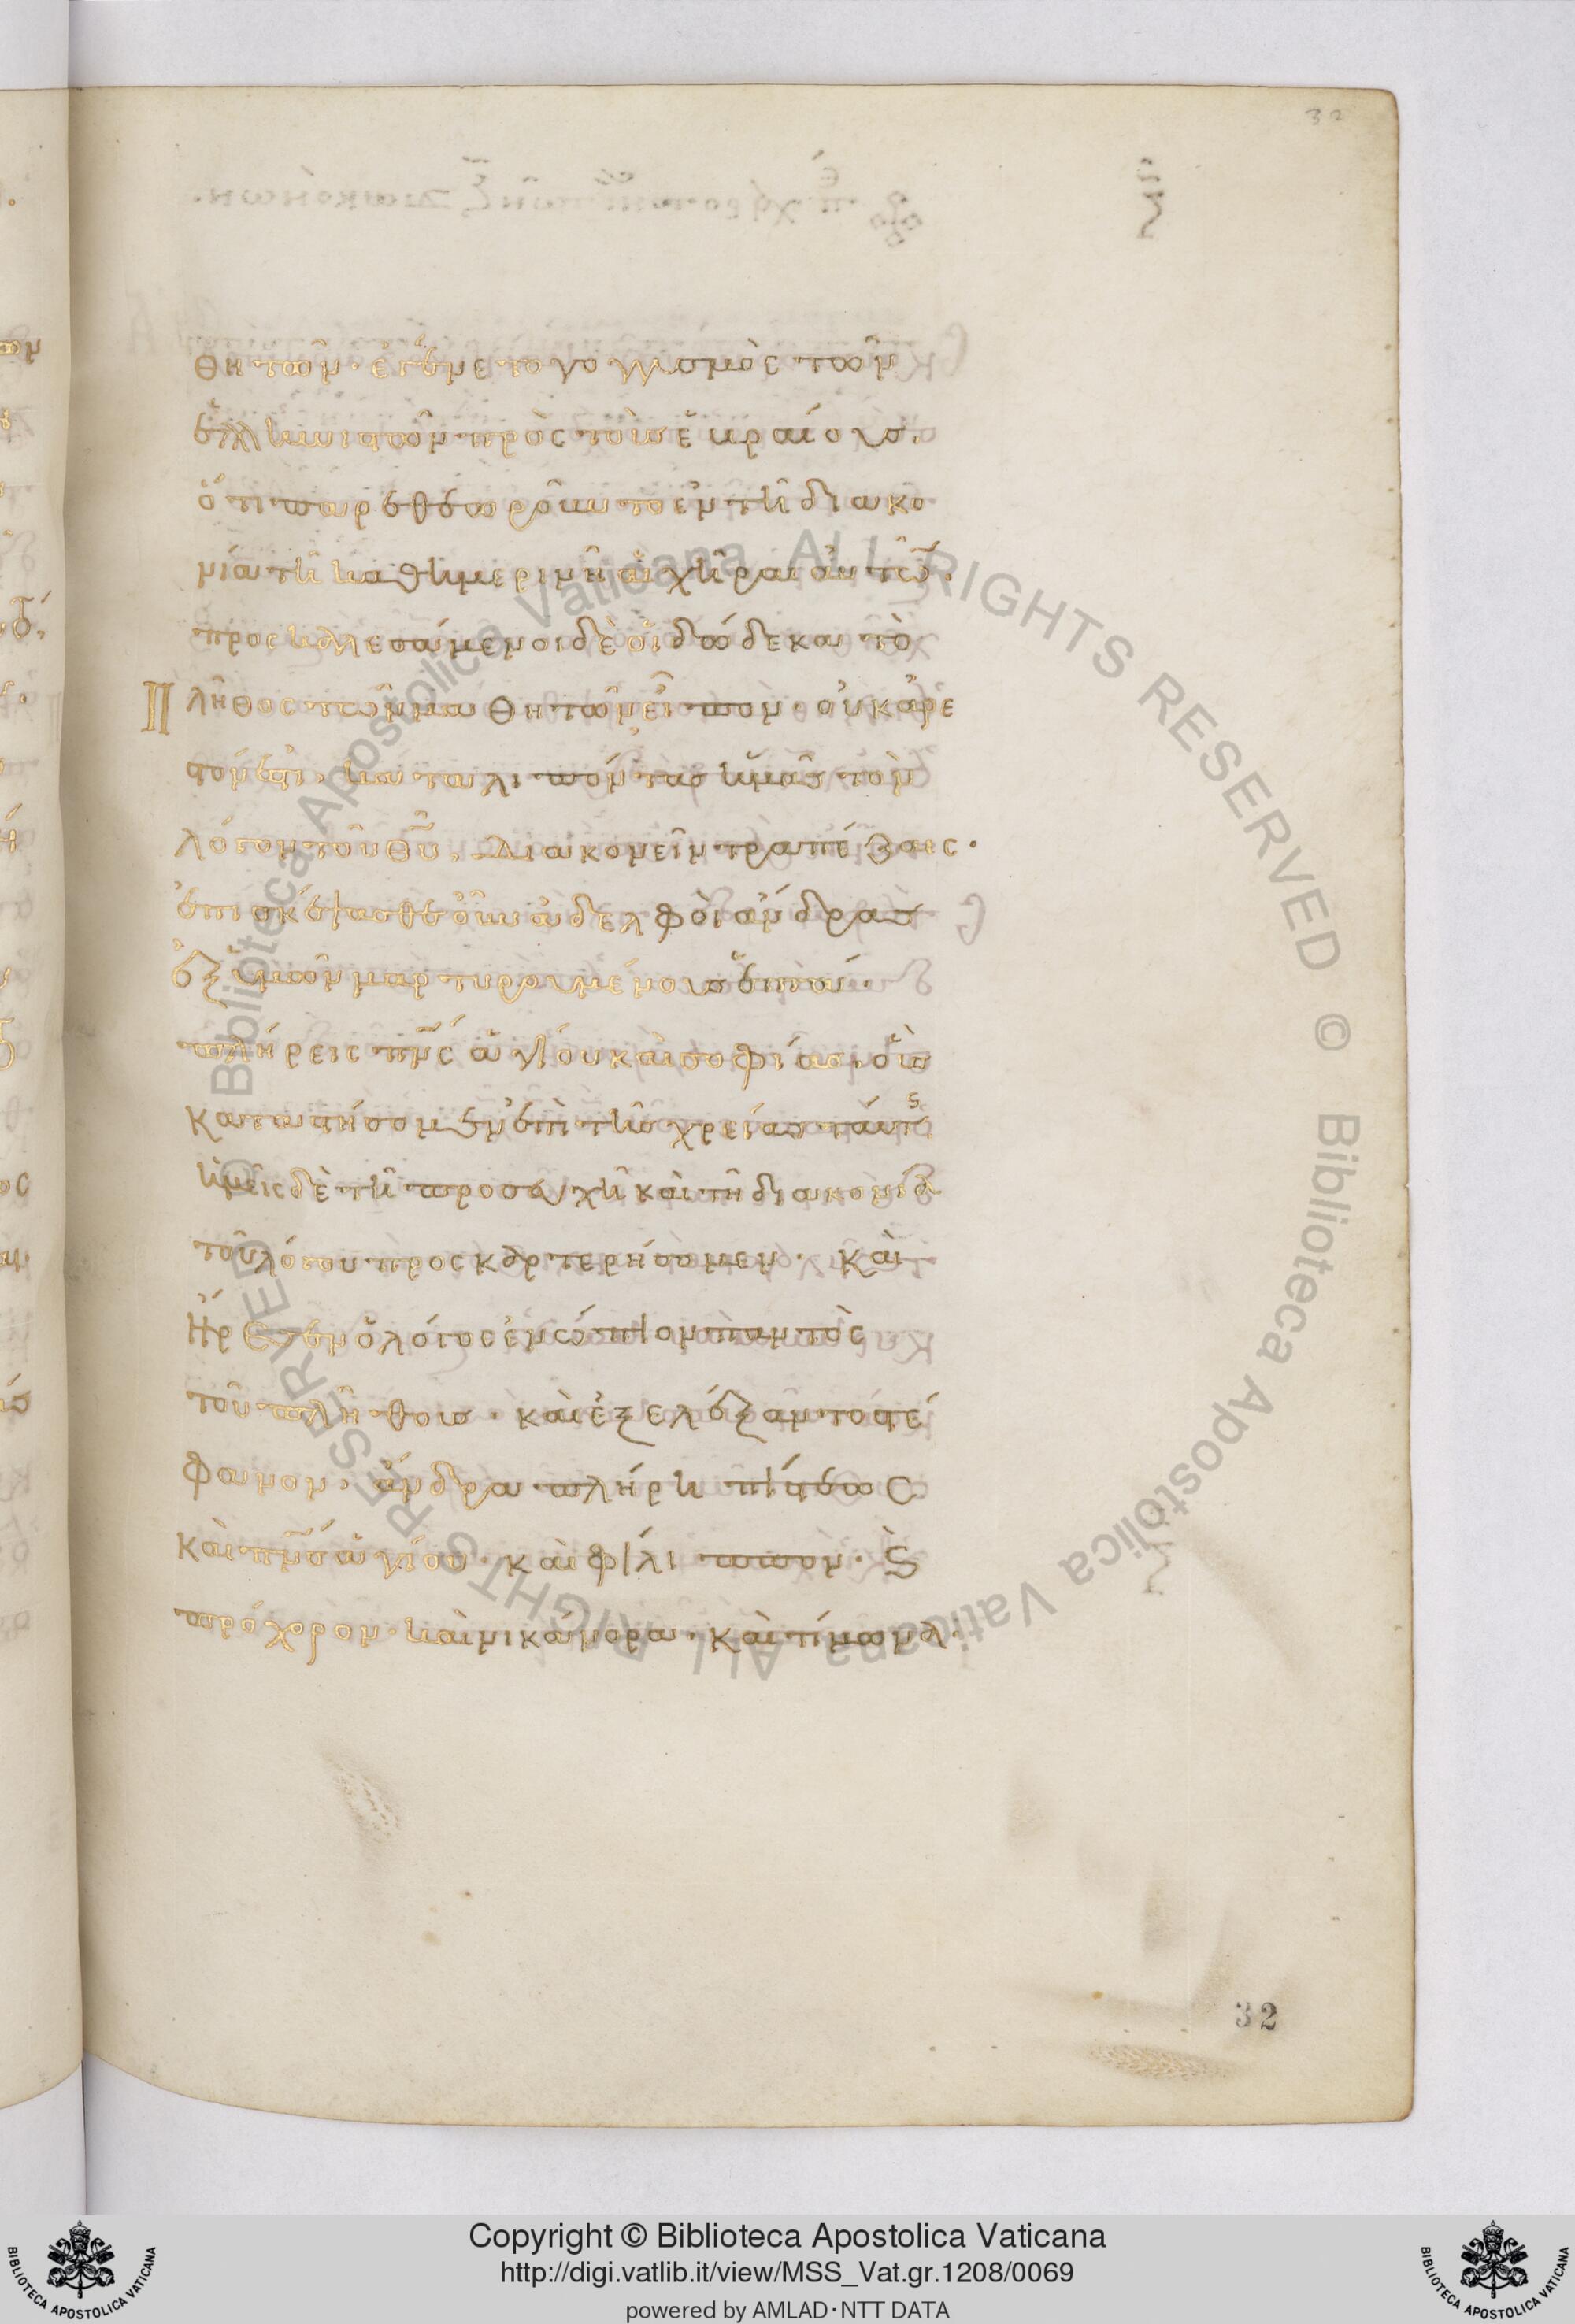 32
θητῶν· ἐγένετο γογγυσμὸς τῶν
ἑλληνιστῶν πρὸς τοὺς ἑβραίους.
ὅτι παρεθεωροῦντο ἐν τῆ διακο
νία τῆ καθημερινῆ αἱ χῆραι αὐτῶ̃.
προσκαλεσάμενοι δὲ οἱ δώδεκα τὸ
πλῆθος τῶν μαθητῶν εἶπον· οὐκ ἀρε
στόν ἐστι, καταλιπόντας ἡμᾶς τὸν
λόγον τοῦ θῦ, διακονεῖν τραπέζαις·
ἐπισκέψασθε οὖν ἀδελφοὶ ἄνδρας
ἐξ ὑμῶν μαρτυρουμένους ἑπτά·
πλήρεις πν̅ς ἁγίου καὶ σοφίας, οὓς
καταστήσομεν ἐπὶ τῆς χρείας ταύτς
ἡμεῖς δὲ τῆ προσευχῆ καὶ τῆ διακονία
τοῦ λόγου προσκαρτερήσομεν· καὶ
ἤρεσεν ὁ λόγος ἐνώπιον παντὸς
τοῦ πλήθους· καὶ ἐξελέξαντο στέ
φανον, ἄνδρα πλήρη πίστεως
καὶ πν̅ς ἁγίου· καὶ φίλιππον· ϗ
πρόχορον· καὶ νικάνορα· καὶ τίμωνα·
32
© Biblioteca Apostolica Vaticana ALL RIGHTS RESERVED © Biblioteca Apostolica Vaticana ALL RIGHTS RESERVED
BIBLIOTECA APOSTOLICA VATICANA
Copyright © Biblioteca Apostolica Vaticana
http://digi.vatlib.it/view/MSS_Vat.gr.1208/0069
powered by AMLAD·NTT DATA
BIBLIOTECA APOSTOLICA VATICANA